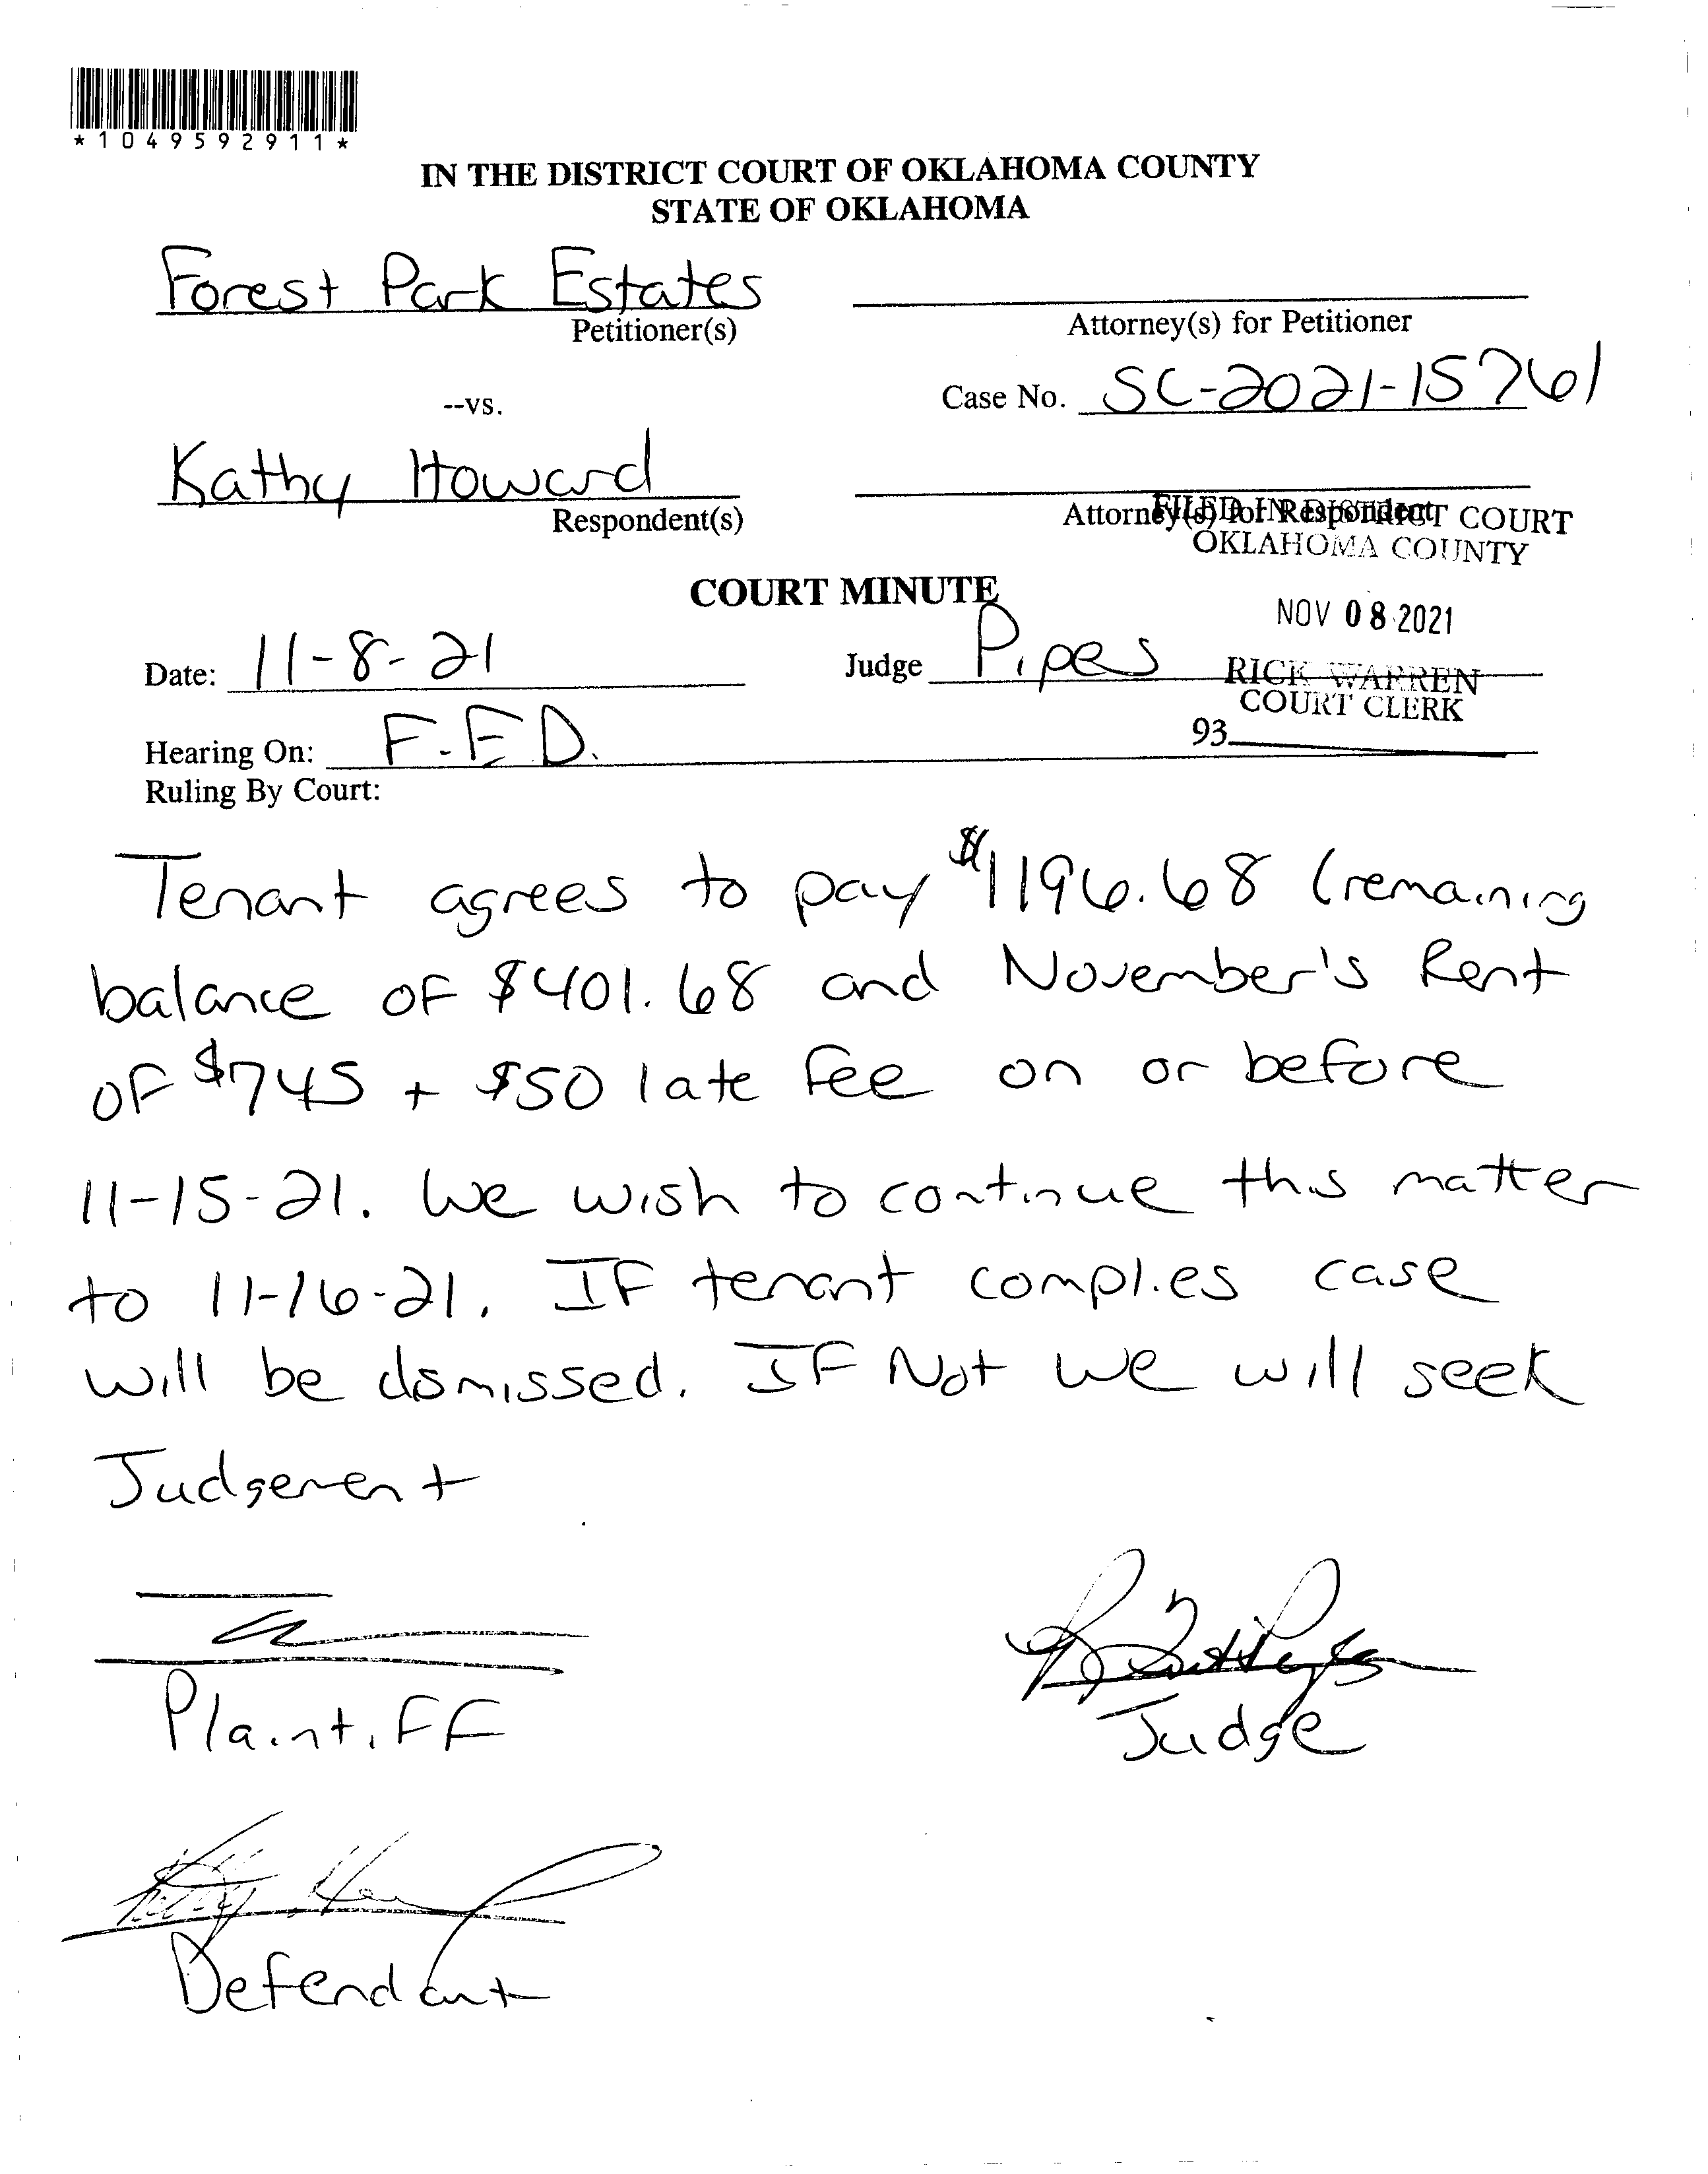 *1049592911*
IN THE DISTRICT COURT OF OKLAHOMA COUNTY
STATE OF OKLAHOMA
Forest Park Estates
Petitioner(s)
Attorney(s) for Petitioner
--vs.
Case No. SC-2021-15761
Kathy Howard
Respondent(s)
Attorney(s) for Respondent
FILED IN DISTRICT COURT
OKLAHOMA COUNTY
COURT MINUTE
NOV 08 2021
Date: 11-8-21
Judge Pipes
RICK WARREN
COURT CLERK
93
Hearing On: F.E.D.
Ruling By Court:
Tenant agrees to pay $1196.68 (remaining
balance of $401.68 and November's Rent
of $745 + $50 late fee on or before
11-15-21. We wish to continue this matter
to 11-16-21. If tenant complies case
will be dismissed. If Not we will seek
Judgement
Plaintiff
Judge
Defendant